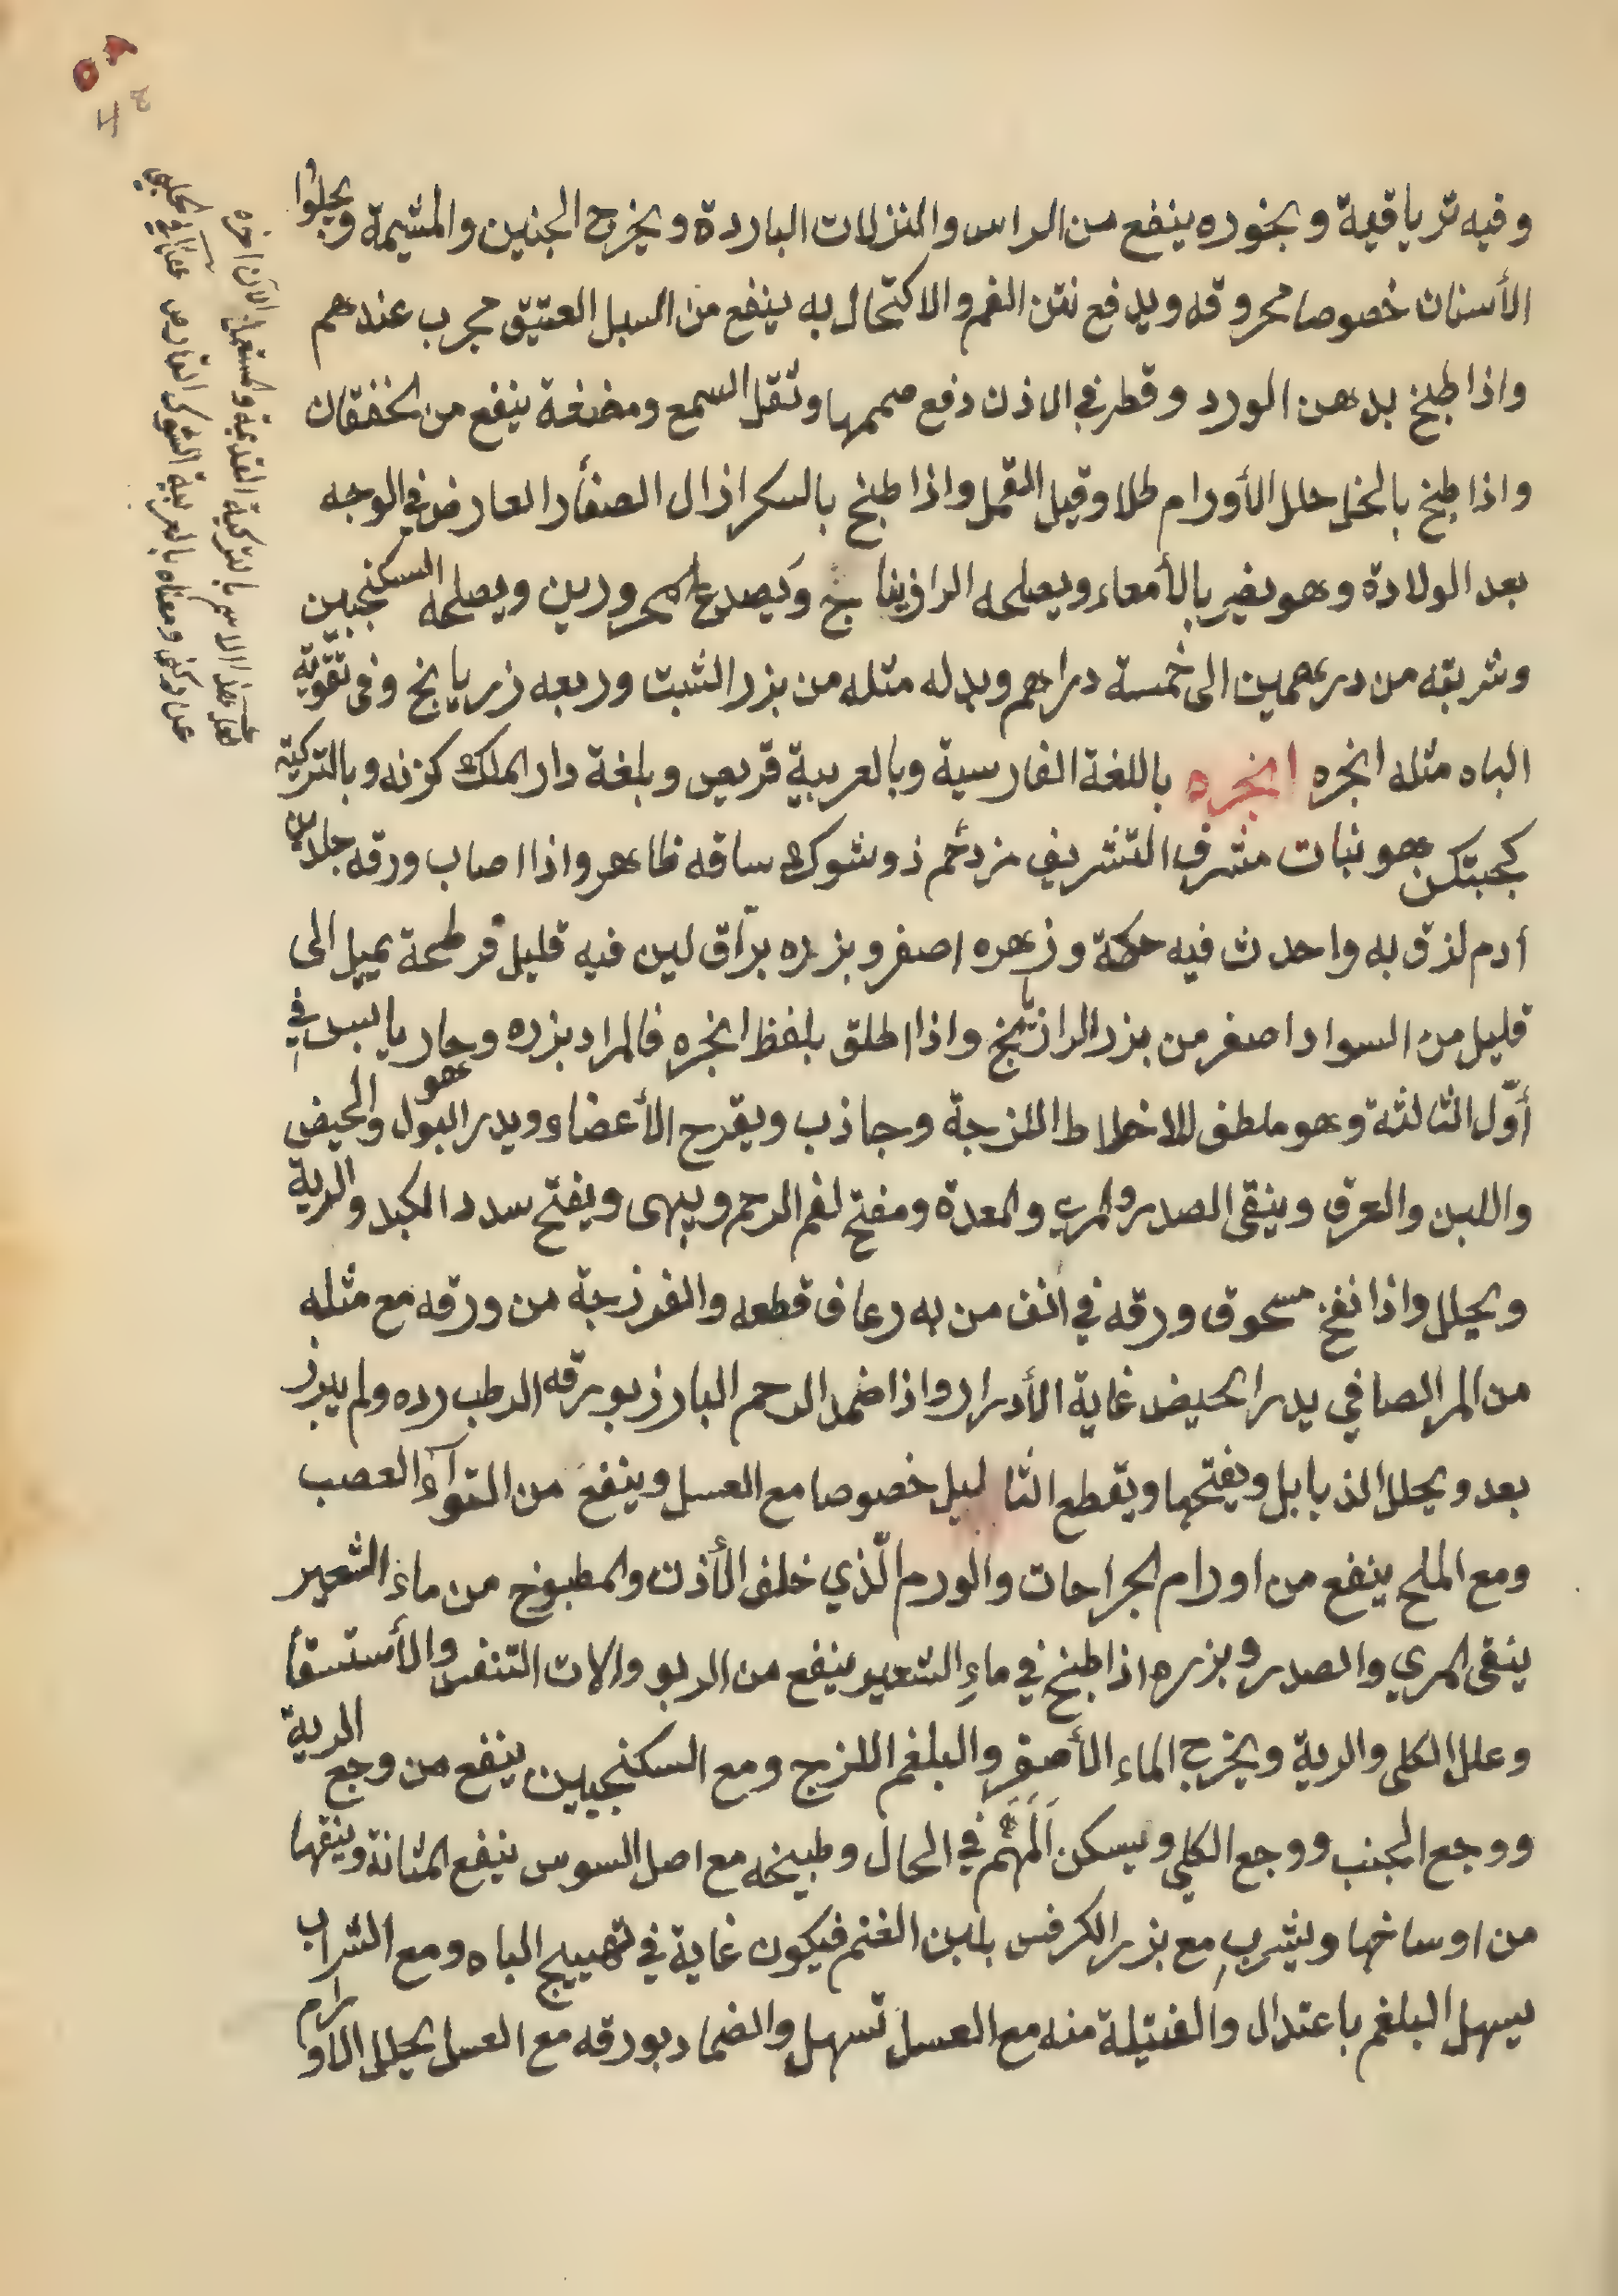 وفيه ترياقية وبخوره ينفع من الراس والنزلات الباردة ويخرج الجنين والمشيمة ويجلوا
الأسنان خصوصا محروقه ويدفع نتن الفم والاكتحال به ينفع من السبل العتيق مجرب عندهم
واذا طبخ بدهن الورد وقطر في الاذن دفع صممها وثقل السمع ومضغة ينفع من الخفقان
واذا طبخ بالخل حلل الأورام طلا وقيل القمل واذا طبخ بالسكر ازال الصفأر العارض في الوجه
بعد الولادة وهو يضر بالأمعاء ويصلحه الرازينا نج ويصدع المحرورين ويصلحه السكنجبين
وشربته من درهمين الى خمسة دراهم وبدله مثله من بزر الشبت وربعه زريانج وفى تقوية
الباه مثله انجره انجره باللغة الفارسية وبالعربية قريص وبلغة دار الملك كزنه وبالتركية
كجبتكن هو نبات مشرف التشريف مزدئحم ذو شوك ساقه ظاهر واذا اصاب ورقه جلد بن
ادم لذق به واحدث فيه حكة وزهره اصفر وبزره برّاق لين فيه قليل فرطحة يميل الى
قليل من السواد اصغر من بزر الرازيانج واذا اطلق بلفظ انجره فالمراد بزره وحار يابس في
أوّل الثالثة وهو ملطف للاخلاط اللزجة وجاذب ويقرح الأعضاء ويدر البول هو والحيض
واللبن والعرق وينقى الصدر والمري والمعدة ومفتح لفم الرحم ويبهى ويفتح سدد الكبد والرية
ويحلل واذا نفخ مسحوق ورقه في أنف من به رعاف قطعه والفرزجة من ورقه مع مثله
من المر الصافي يدر الحيض غاية الأدرار واذا ضمد الرحم البارز بورقه الرطب رده ولم يبرز
بعد ويحلل الذبابل ويفتحها ويقطع الثا ليل خصوصا مع العسل وينفع من التوآء العصب
ومع الملح ينفع من اورام الجراحات والورم الّذي خلف الأذن والمطبوخ من ماء الشعير
ينقى المري والصدر وبزره اذا طبخ في ماءِ الشعير ينفع من الربو والات التنفس والأستسقا
وعلل الكلى والرية ويخرج الماء الأصفر والبلغم اللزج ومع السكنجبين ينفع من وجع الرية
ووجع الجنب ووجع الكلي ويسكن في الحال وطبيخه مع اصل السوس ينفع المثانة وينقها
من اوساخها ويشرب مع بزر الكرفس بلبن الغنم فيكون غاية في تهييج الباه ومع الشراب
يسهل البلغم باعتدال والفتيلة منه مع العسل تسهل والضماد بورقه مع العسل يحلل الاورام